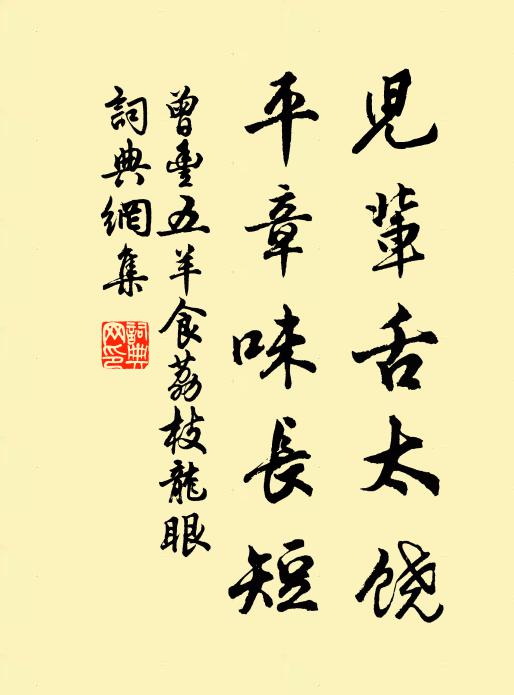 児輩舌太饶
平章味長短
曾豊五羊食荔枝龍眼
詞典網集
詞典
网印